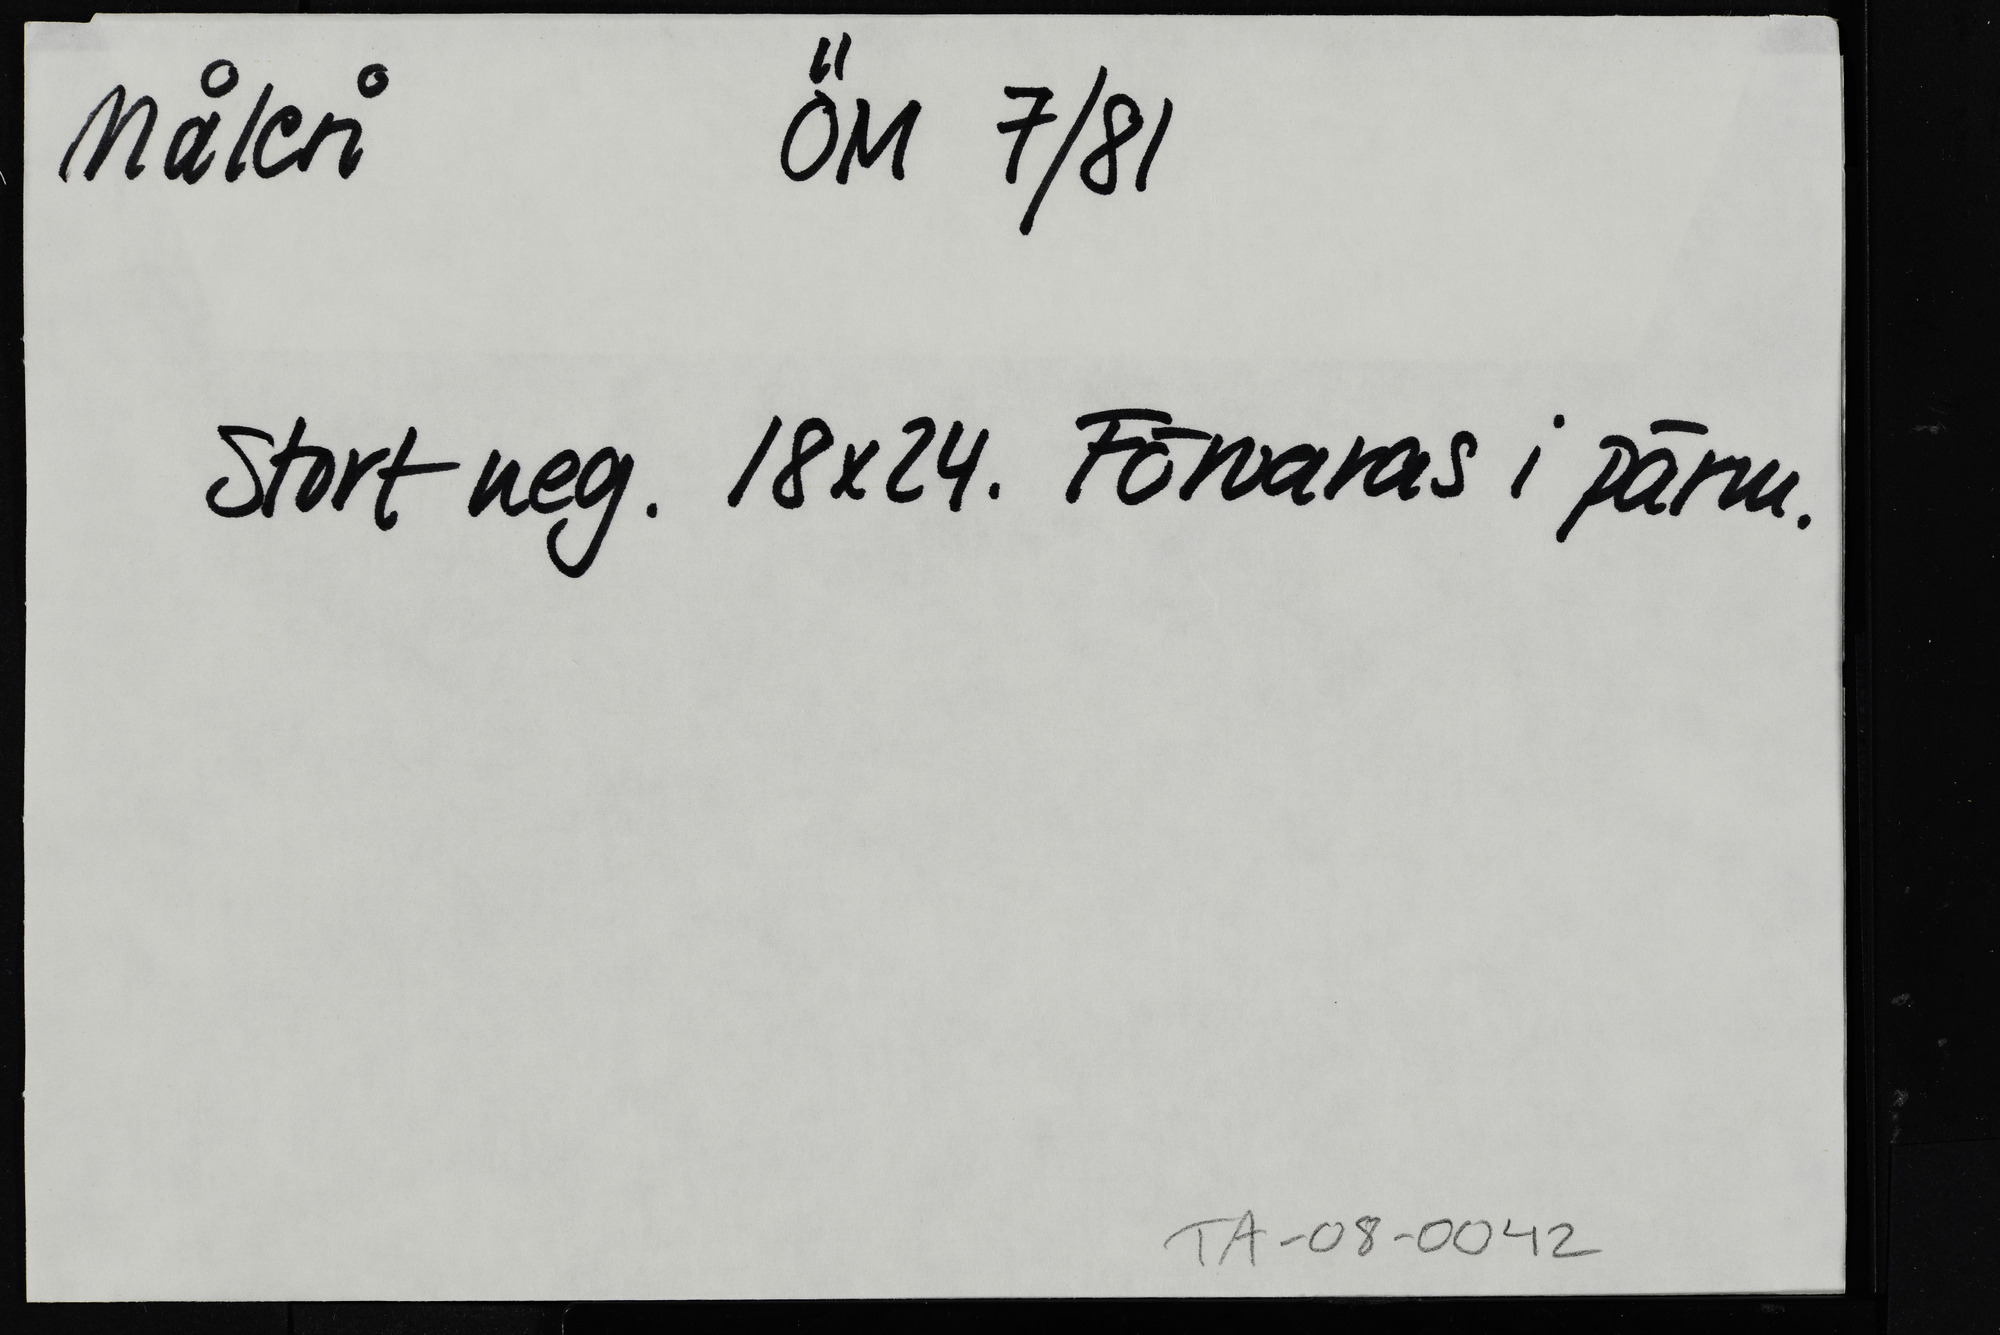 Måleri ÖM 7/81
Stort neg. 18x24. Förvaras i pärm.
TA-08-0042